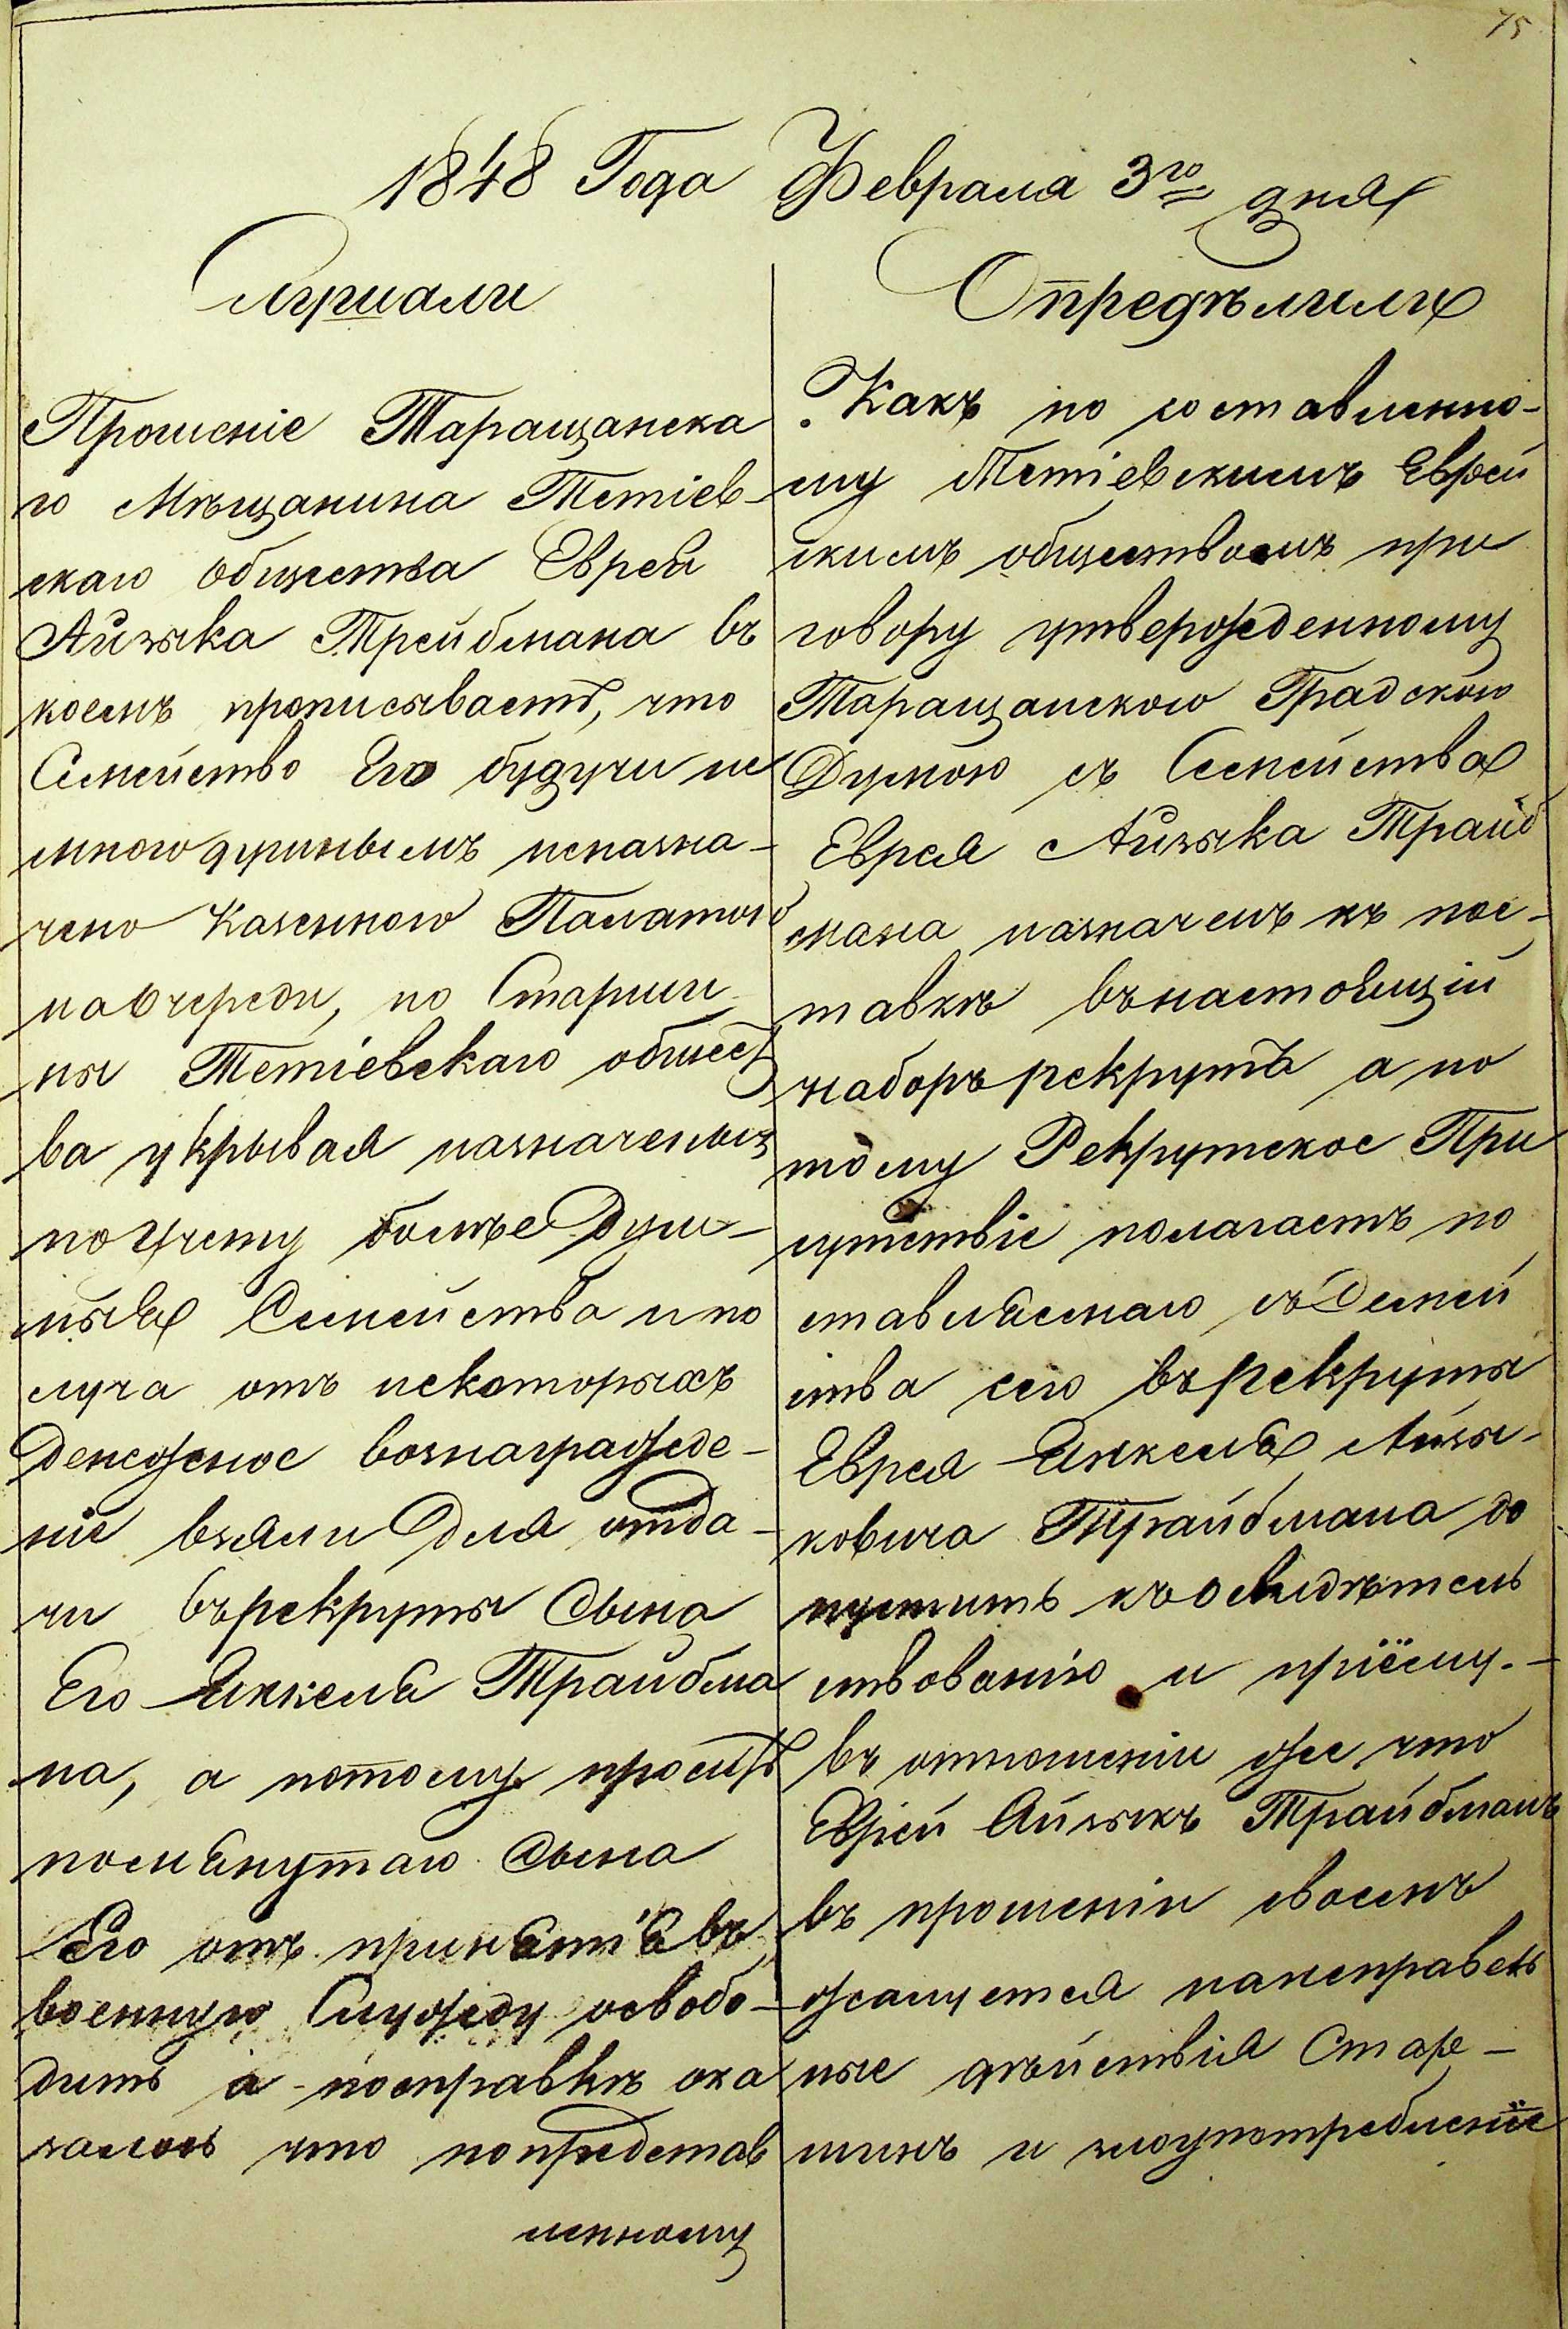 75
1848 Года Февраля 3го дня
Слушали
Прошеніе Таращанска
го Мѣщанина Тетіев-
скаго общества Еврея
Айзыка Трейбмана въ
коемъ прописываетъ, что
Семейство Его будучи не
многодушнымъ неназна-
чено Казенного Палатою
наочереди, но Старши
ны Тетіевскаго общест
ва укрывая назначеныя
поучету болѣе Душ-
ныя Семейства и по
луча отъ некоторыхъ
Денежное вознагражде-
ніе взяли Для отда-
чи върекруты Сына
Его Янкеля Трайбма
на, а потому проситъ
помянутаго Сына
Его отъ принятія въ
военную Службу освобо-
дить а посправкѣ ока
залось что попредстав
ленному
Опредѣлили
Какъ по составленно-
му Тетіевскимъ Еврей
скимъ обществомъ при
говору утвержденному
Таращанскою Градскою
Думою съ Семейства
Еврея Айзыка Трайб
мана назначенъ къ пос-
тавкѣ въ настоящій
наборъ рекрутъ а по
тому Рекрутское При
сутствіе полагаетъ по
ставляемаго съ Семей
ства сего въ рекруты
Еврея Янкеля Айзы-
ковича Трайбмана до
пустить къ освидѣтель
ствованію и пріёму.-
въ отношеніи же что
Еврей Айзыкъ Трайбманъ
въ прошеніи своемъ
жалуется нанеправель
ные дѣйствія Стар-
шинъ и злоупотребленіе